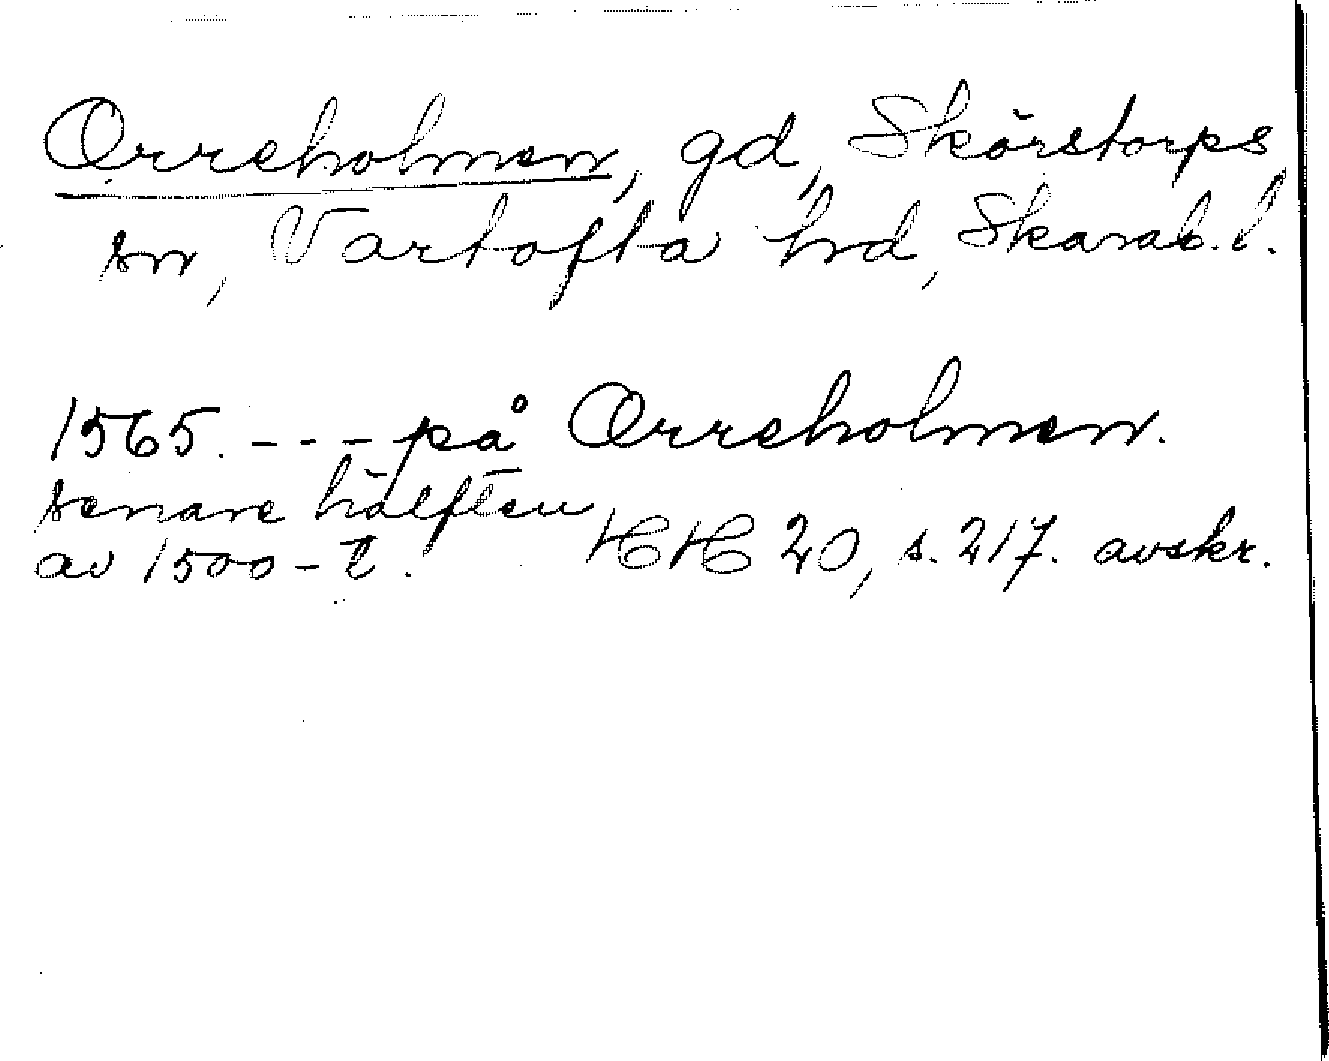 Orreholmen, gd, Skörstorps
sn, Vartofta hrd, Skarab. l.
1565. - - - på Orreholmen.
senare hälften
av 1500-t. HH 20, s. 217. avskr.